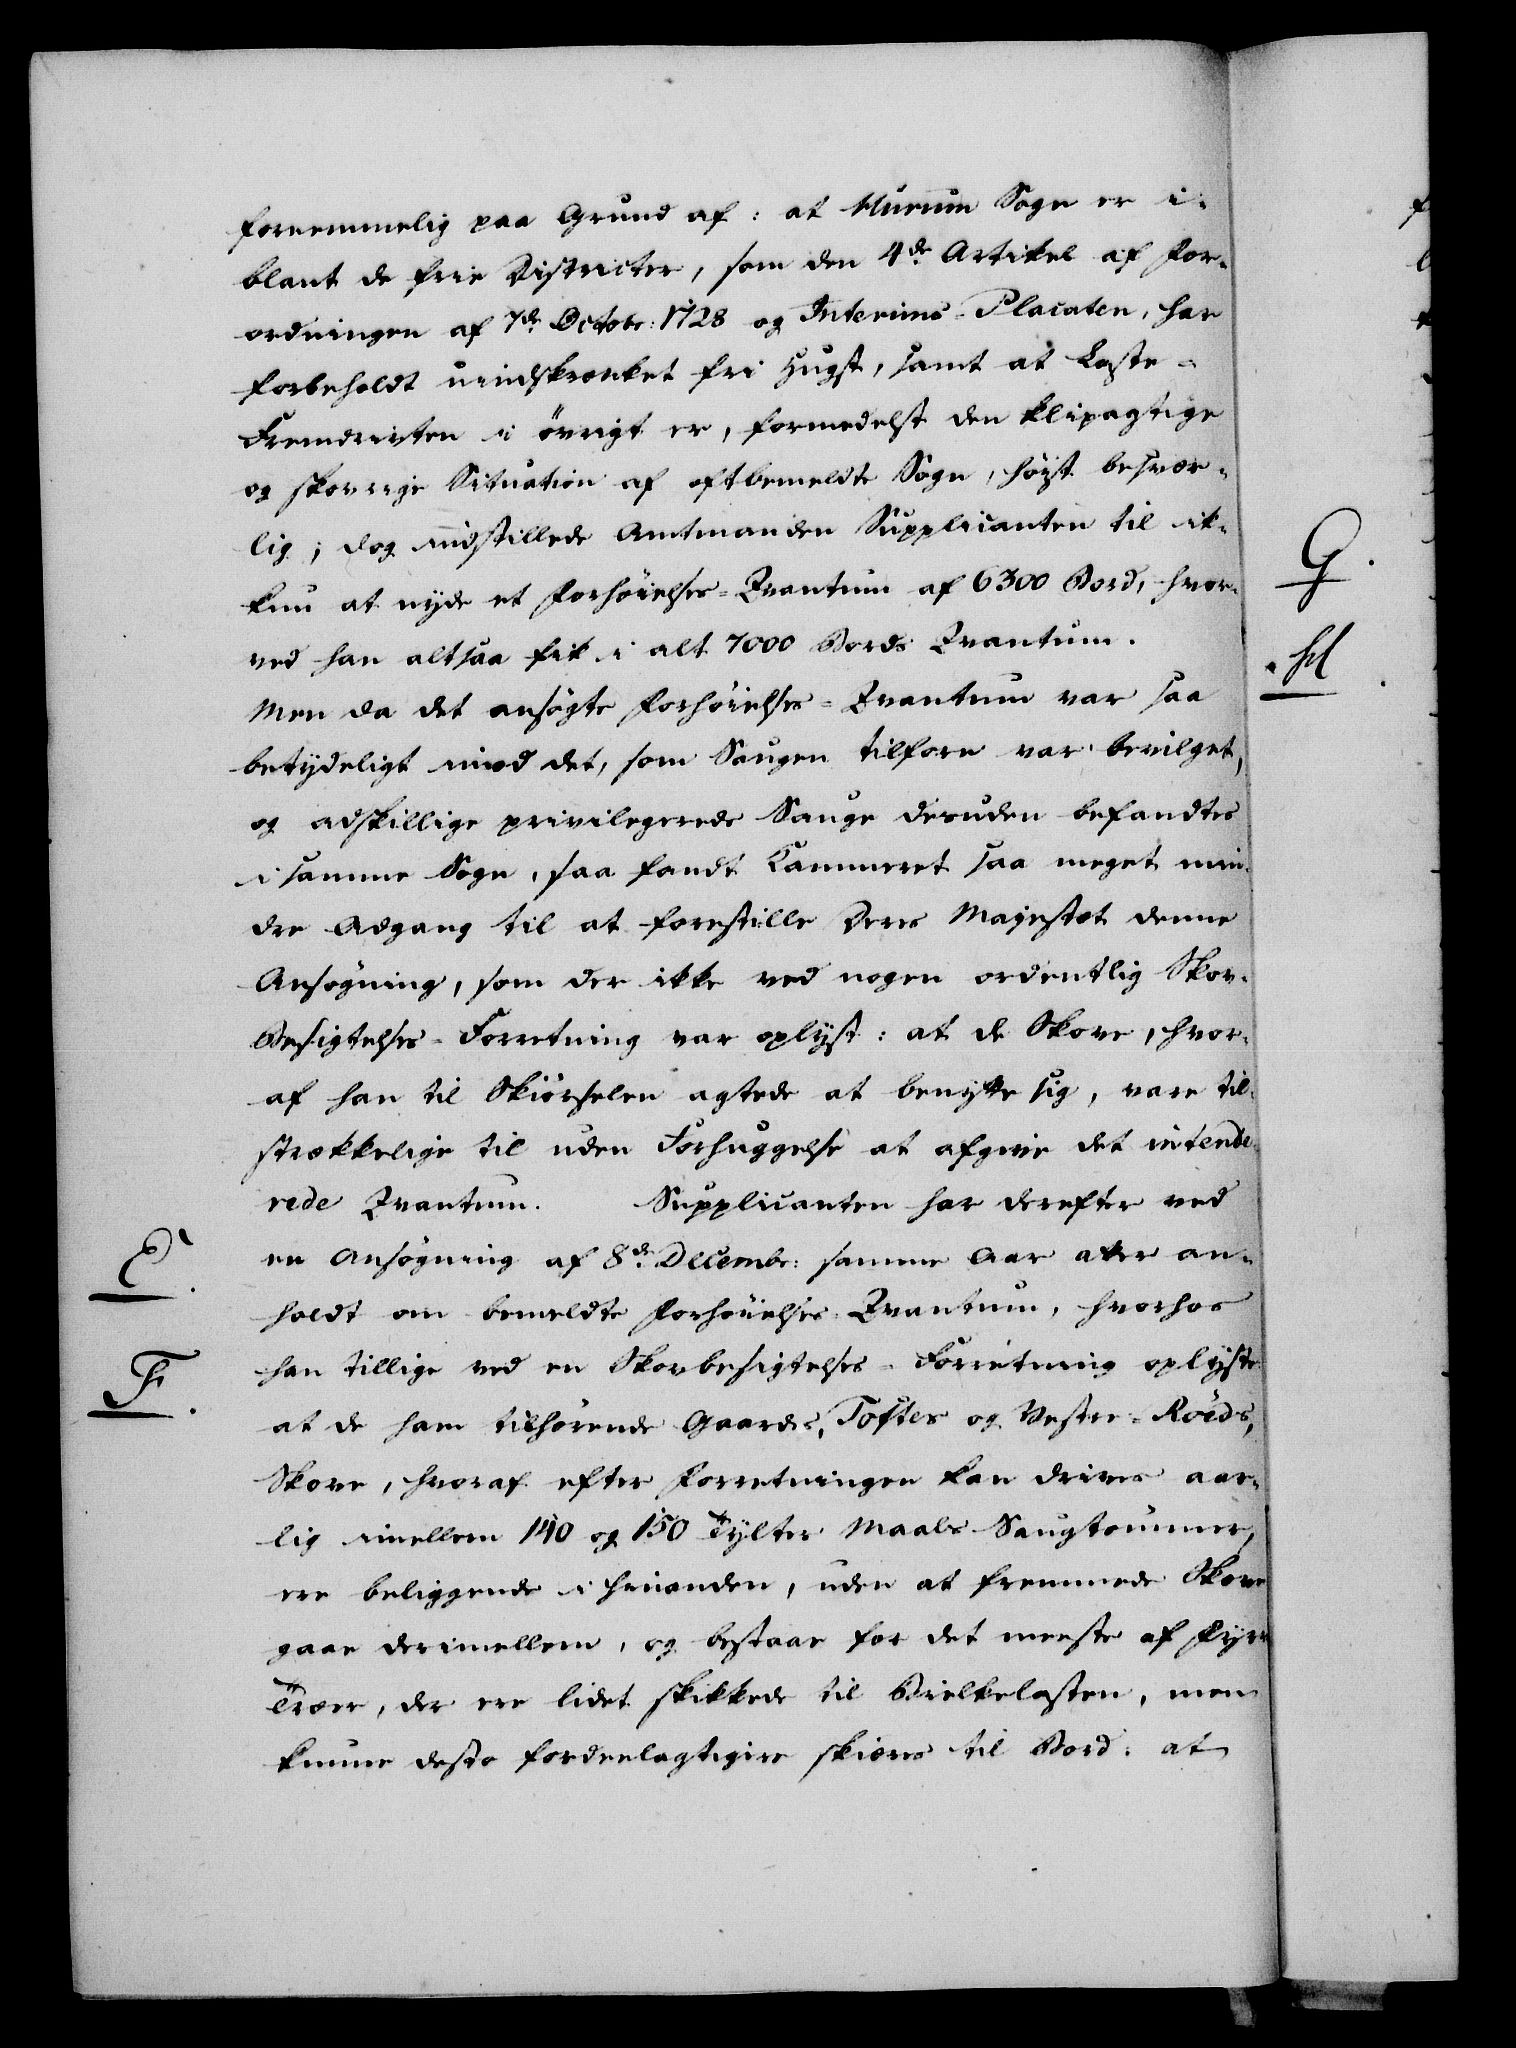 fornemmelig paa Grund af: at Sogn er i-
blant de frie Districter, som den 4de Artikel af For-
ordningen af 7de Octobr: 1728 og Interims-Placaten, har
forbeholdt uindskrænket fri Hugst, samt at Laste-
Fremdrivten i övrigt er, formedelst den klipagtige
og skovrige Situation af oftbemeldte Sogn, höyst besvær-
lig; dog indstillede Amtmanden Supplicanten til ik-
kun at nyde et Forhöielses-Qvantum af 6300 Bord, hvor-
ved han altsaa fik i alt 7000 Bords Qvantum.
Men da det ansögte Forhöielses-Qvantum var saa
betydeligt imod det, som Saugen tilforn var bevilget,
og adskillige privilegerede Sauge desuden befandtes
i samme Sogn, saa fandt Kammeret saa meget min-
dre Adgang til at forestille Deres Majestæt denne
Ansögning, som der ikke ved nogen ordentlig Skov-
Besigtelses-Forretning var oplyst: at de Skove, hvor-
af han til Skiörselen agtede at benytte sig, vare til-
strækkelige til uden Forhuggelse at afgive det intende-
rede Qvantum. Supplicanten har derefter ved
en Ansögning af 8de Decembr: samme Aar atter an-
holdt om bemeldte Forhöielses-Qvantum, hvorhos
han tillige ved en Skovbesigtelses-Forretning oplyste:
at de ham tilhörende Gaardes, Toftes og Vestre-Röeds,
Skove, hvoraf efter Forretningen kan drives aar-
lig imellem 140 og 150 Tylter Maals Saugtömmer,
ere beliggende i hinanden, uden at fremmede Skove
gaae derimellem, og bestaae for det meeste af Fyrre
Træer, der ere lidet skikkede til Bielkelasten, men
kunne desto fordeelagtigere skiæres til Bord: at
E.
F.
G.
H.